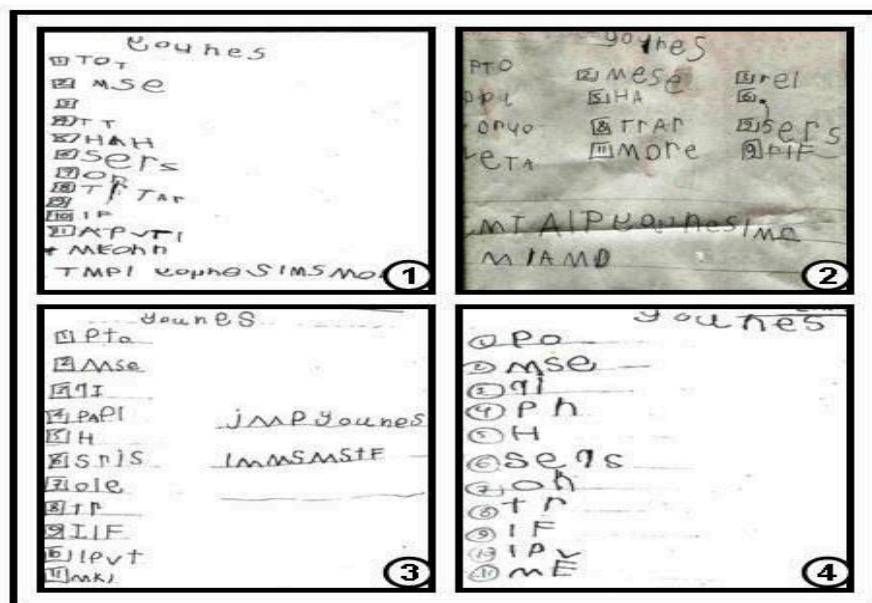 younes
1 TOT
2 MSe
3
4 TT
5 HAH
6 Sers
7 OP
8 TrTAr
9
10 IP
11 APVTI
MEOhn
TMPI younes IMSMO
1
younes
PTO 2 Mese 3 rel
ppy 5 HA 6.
onyo 8 TrAr 5 Sers
eTA 11 More 9 PIF
MTAIP younes IMe
MIAMD
2
younes
1 Pto
2 Mse
3 qI
4 PAPI
5 H
6 SrIS
7 ole
8 Tr
9 IIF
10 IPvt
11 MKI
jMPYounes
IMMSMStF
3
younes
1 PO
2 MSe
3 qi
4 Ph
5 H
6 Seqs
7 oh
8 Tr
9 IF
10 IPv
11 mE
4